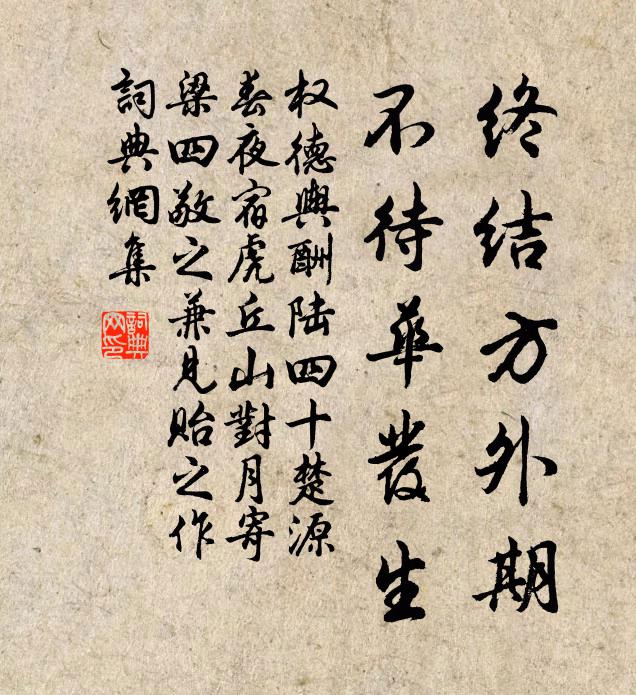 终结方外期
不待華發生
权德輿酬陆四十楚源
春夜宿虎丘山對月寄
梁四敬之兼見貽之作
詞典網集
詞典網印